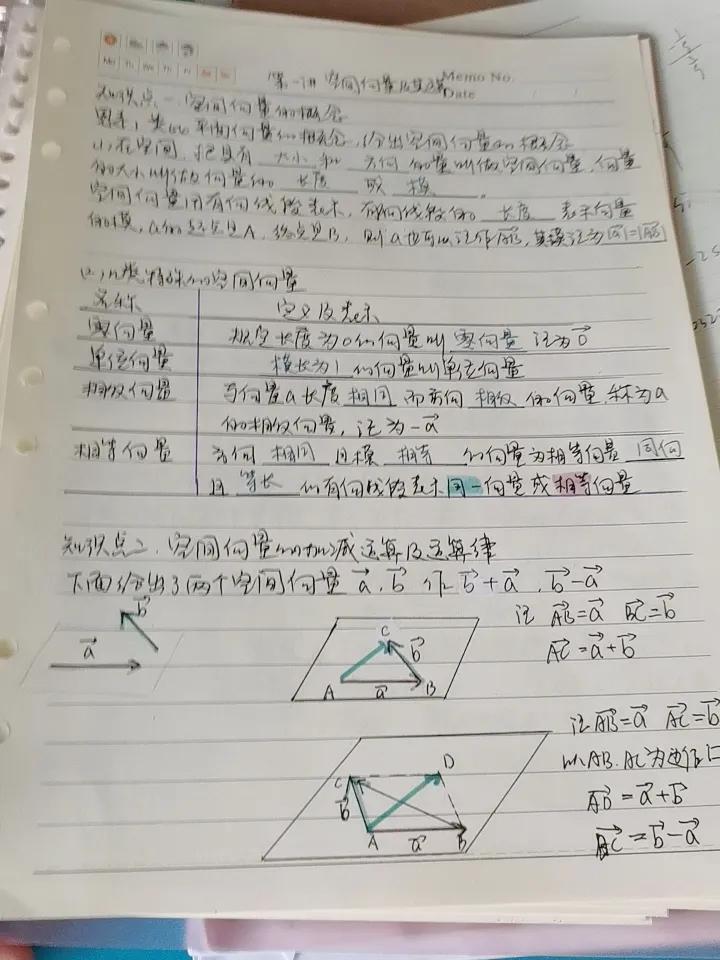 Memo No.
Date
Mo Tu We Th Fr Sa Su
第一讲 空间向量及其运算
知识点一、空间向量的概念
思考:类比平面向量的概念,给出空间向量的概念
(1)在空间,把具有 大小 和 方向 的量叫做空间向量,向量
的大小叫做向量的 长度 或 模 .
空间向量用有向线段表示,有向线段的 长度 表示向量
的模,a的起点是A,终点是B,则a也可以记作AB,其模记为|a|=|AB|
(2)几类特殊的空间向量
名称 定义及表示
零向量 规定长度为0的向量叫 零向量 记为0
单位向量 模长为1的向量叫单位向量
相反向量 与向量a长度 相同 而方向 相反 的向量,称为a
的相反向量,记为-a
相等向量 方向 相同 且模 相等 的向量为相等向量 同向
且 等长 的有向线段表示同一向量或相等向量
知识点二、空间向量的加减运算及运算律
下面给出了两个空间向量 a,b 作 b+a,b-a
a b
A B C a b
记 AB=a BC=b
AC=a+b
A B C D a b
记AB=a AC=b
以AB.AC为边作
AD=a+b
BC=b-a